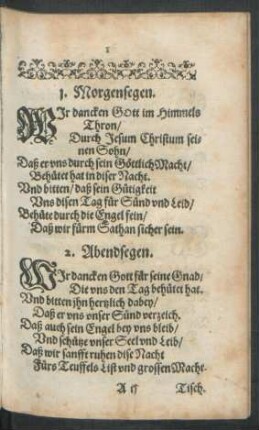 1
1. Morgensegen.
WIr dancken GOtt im Himmels
Thron/
Durch Jesum Christum sei-
nen Sohn/
Daß er vns durch sein Göttlich Macht/
Behütet hat in diser Nacht.
Vnd bitten/ daß sein Gütigkeit
Vns disen Tag für Sünd vnd Leid/
Behüte durch die Engel fein/
Daß wir fürm Sathan sicher sein.
2. Abendsegen.
WIr dancken Gott für seine Gnad/
Die vns den Tag behütet hat.
Vnd bitten jhn hertzlich dabey/
Daß er vns vnser Sünd verzeich.
Daß auch sein Engel bey vns bleib/
Vnd schütze vnser Seel vnd Leib/
Daß wir sanfft ruhen dise Nacht
Fürs Teuffels List vnd grossen Macht.
A ij Tisch.